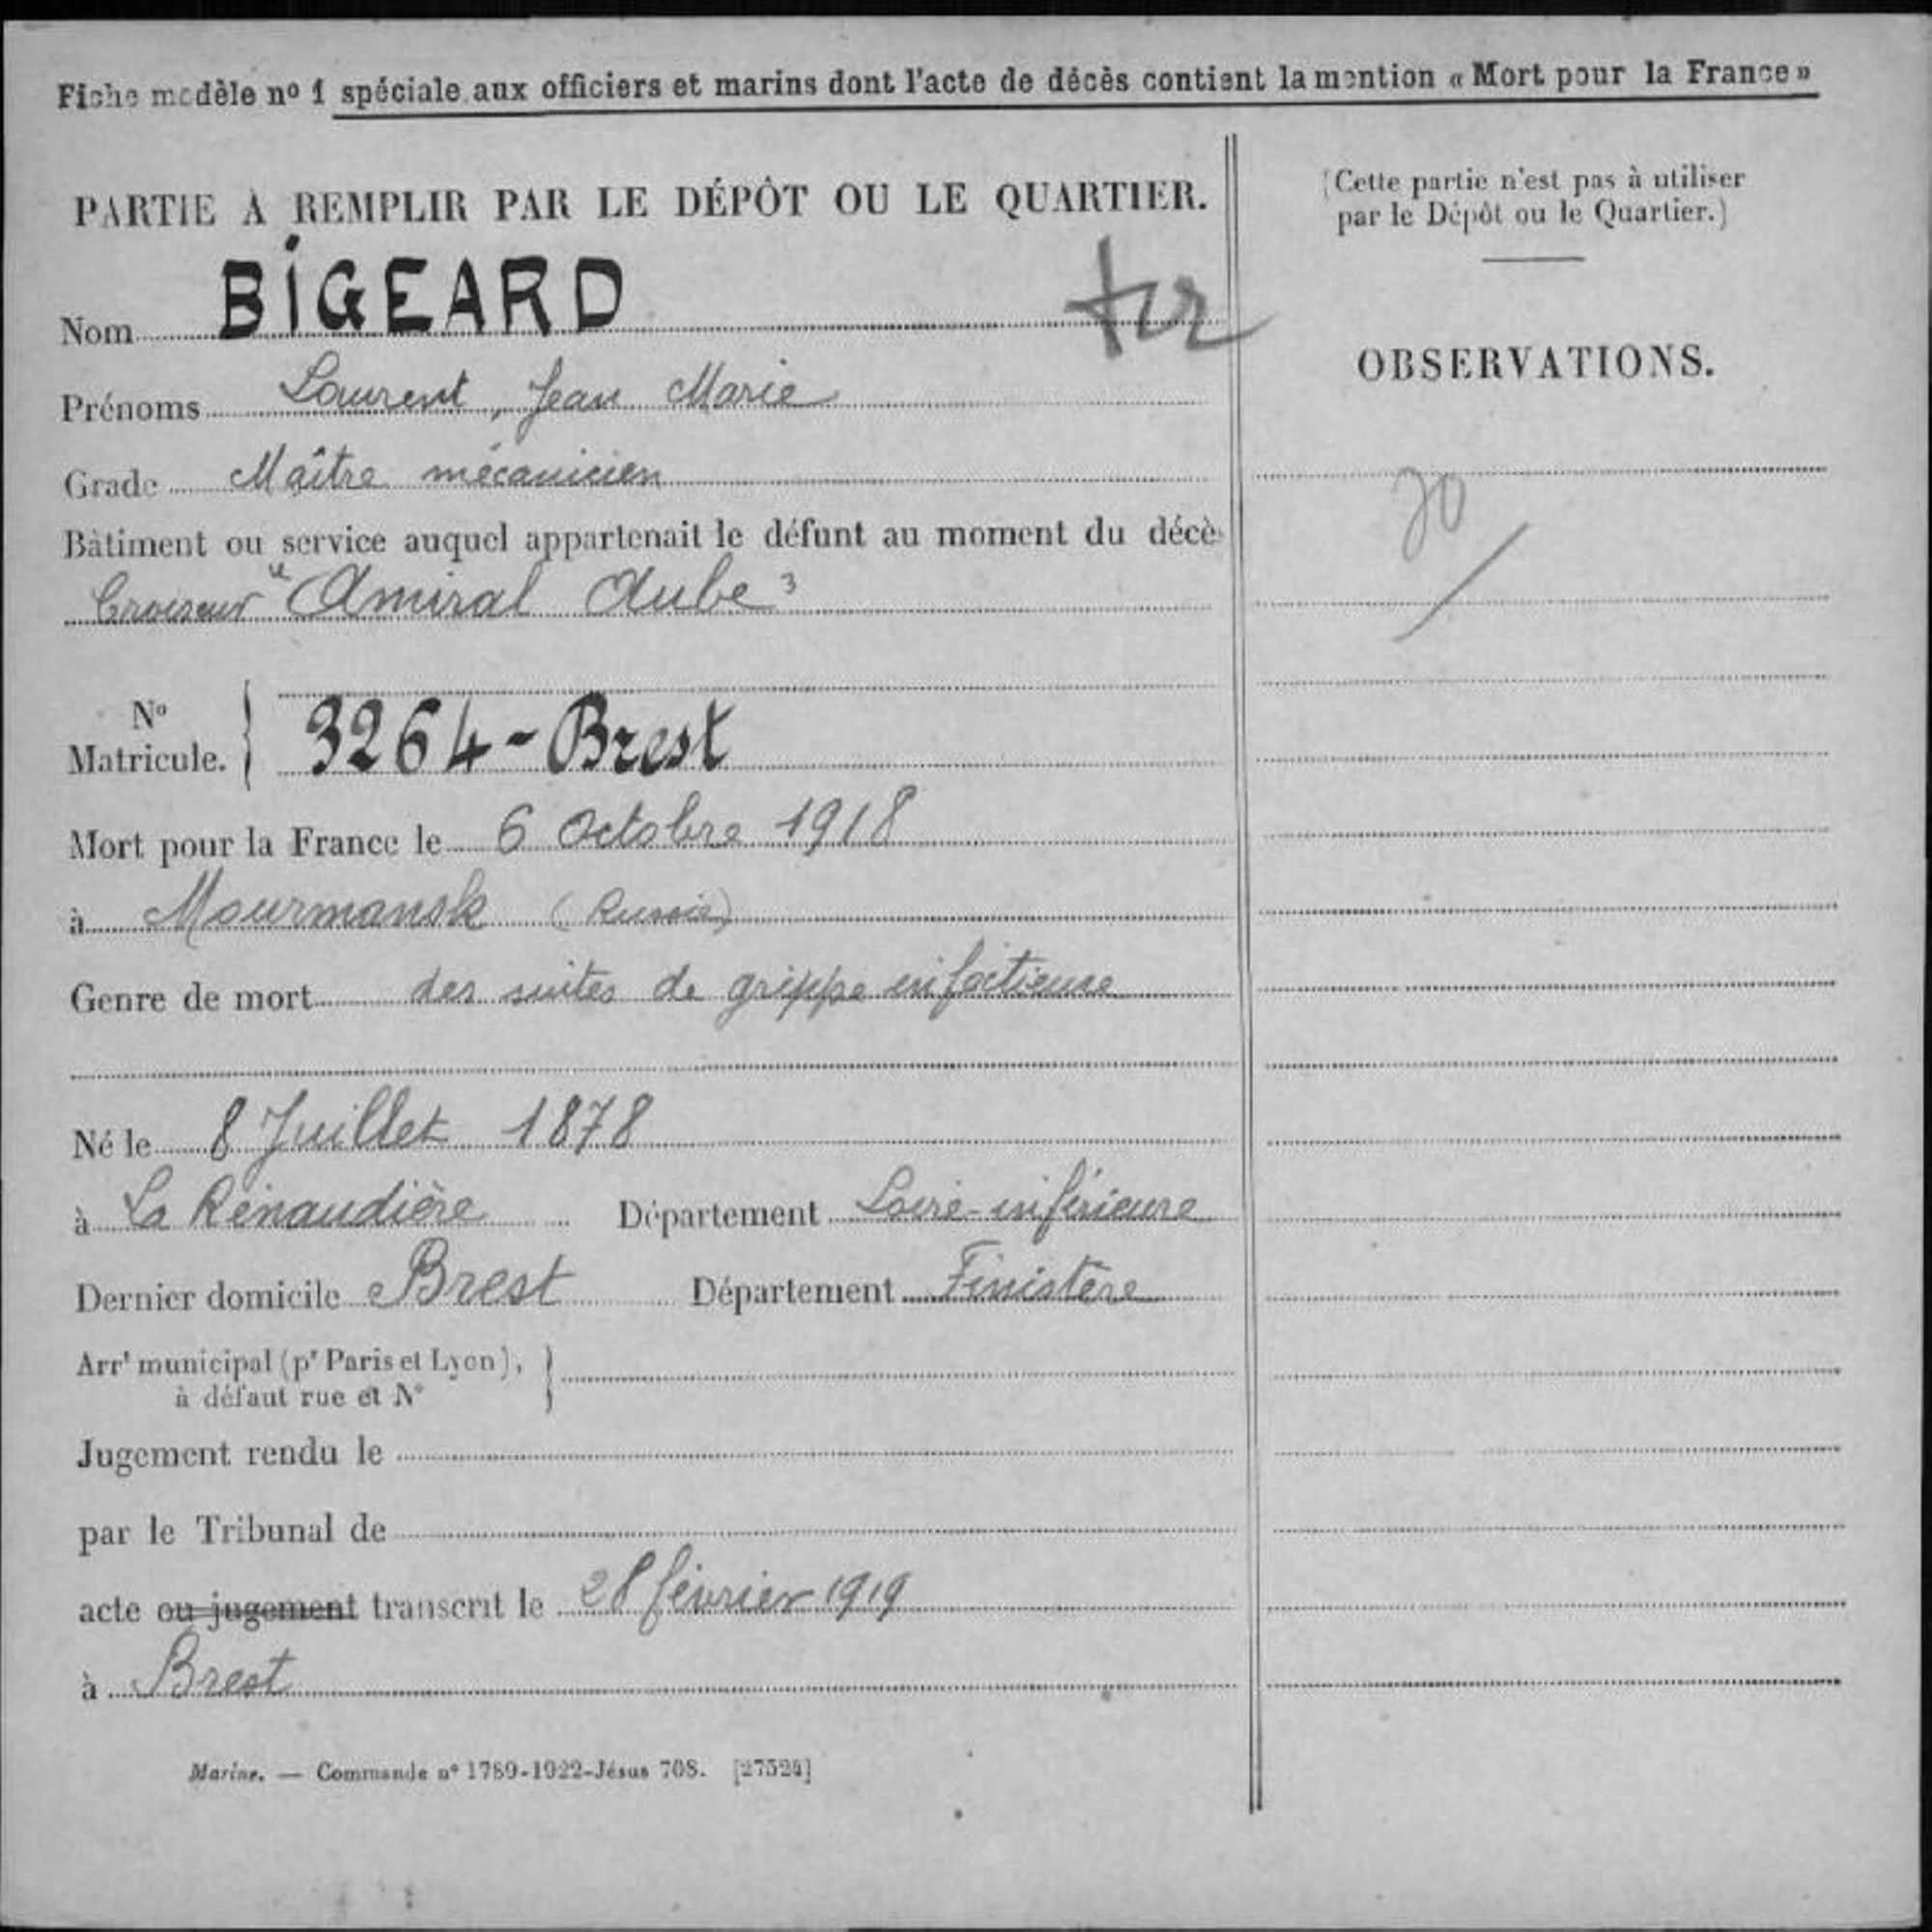 Fiche modèle nº 1 spéciale aux officiers et marins dont l'acte de décès contient la mention « Mort pour la France »
PARTIE À REMPLIR PAR LE DÉPÔT OU LE QUARTIER.
Nom BIGEARD
Prénoms Laurent, Jean Marie
Grade Maître mécanicien
Bâtiment ou service auquel appartenait le défunt au moment du décès
Croiseur "Amiral Aube"
Nº
Matricule. } 3264-Brest
Mort pour la France le 6 Octobre 1918
à Mourmansk (Russie)
Genre de mort des suites de grippe infectieuse
Né le 8 Juillet 1878
à La Rénaudière Département Loire-inférieure
Dernier domicile Brest Département Finistère
Arrt municipal (pr Paris et Lyon),
à défaut rue et Nº
Jugement rendu le
par le Tribunal de
acte ou jugement transcrit le 28 février 1919
à Brest
Marine. — Commande nº 1789-1922-Jésus 708. [27524]
(Cette partie n'est pas à utiliser
par le Dépôt ou le Quartier.)
OBSERVATIONS.